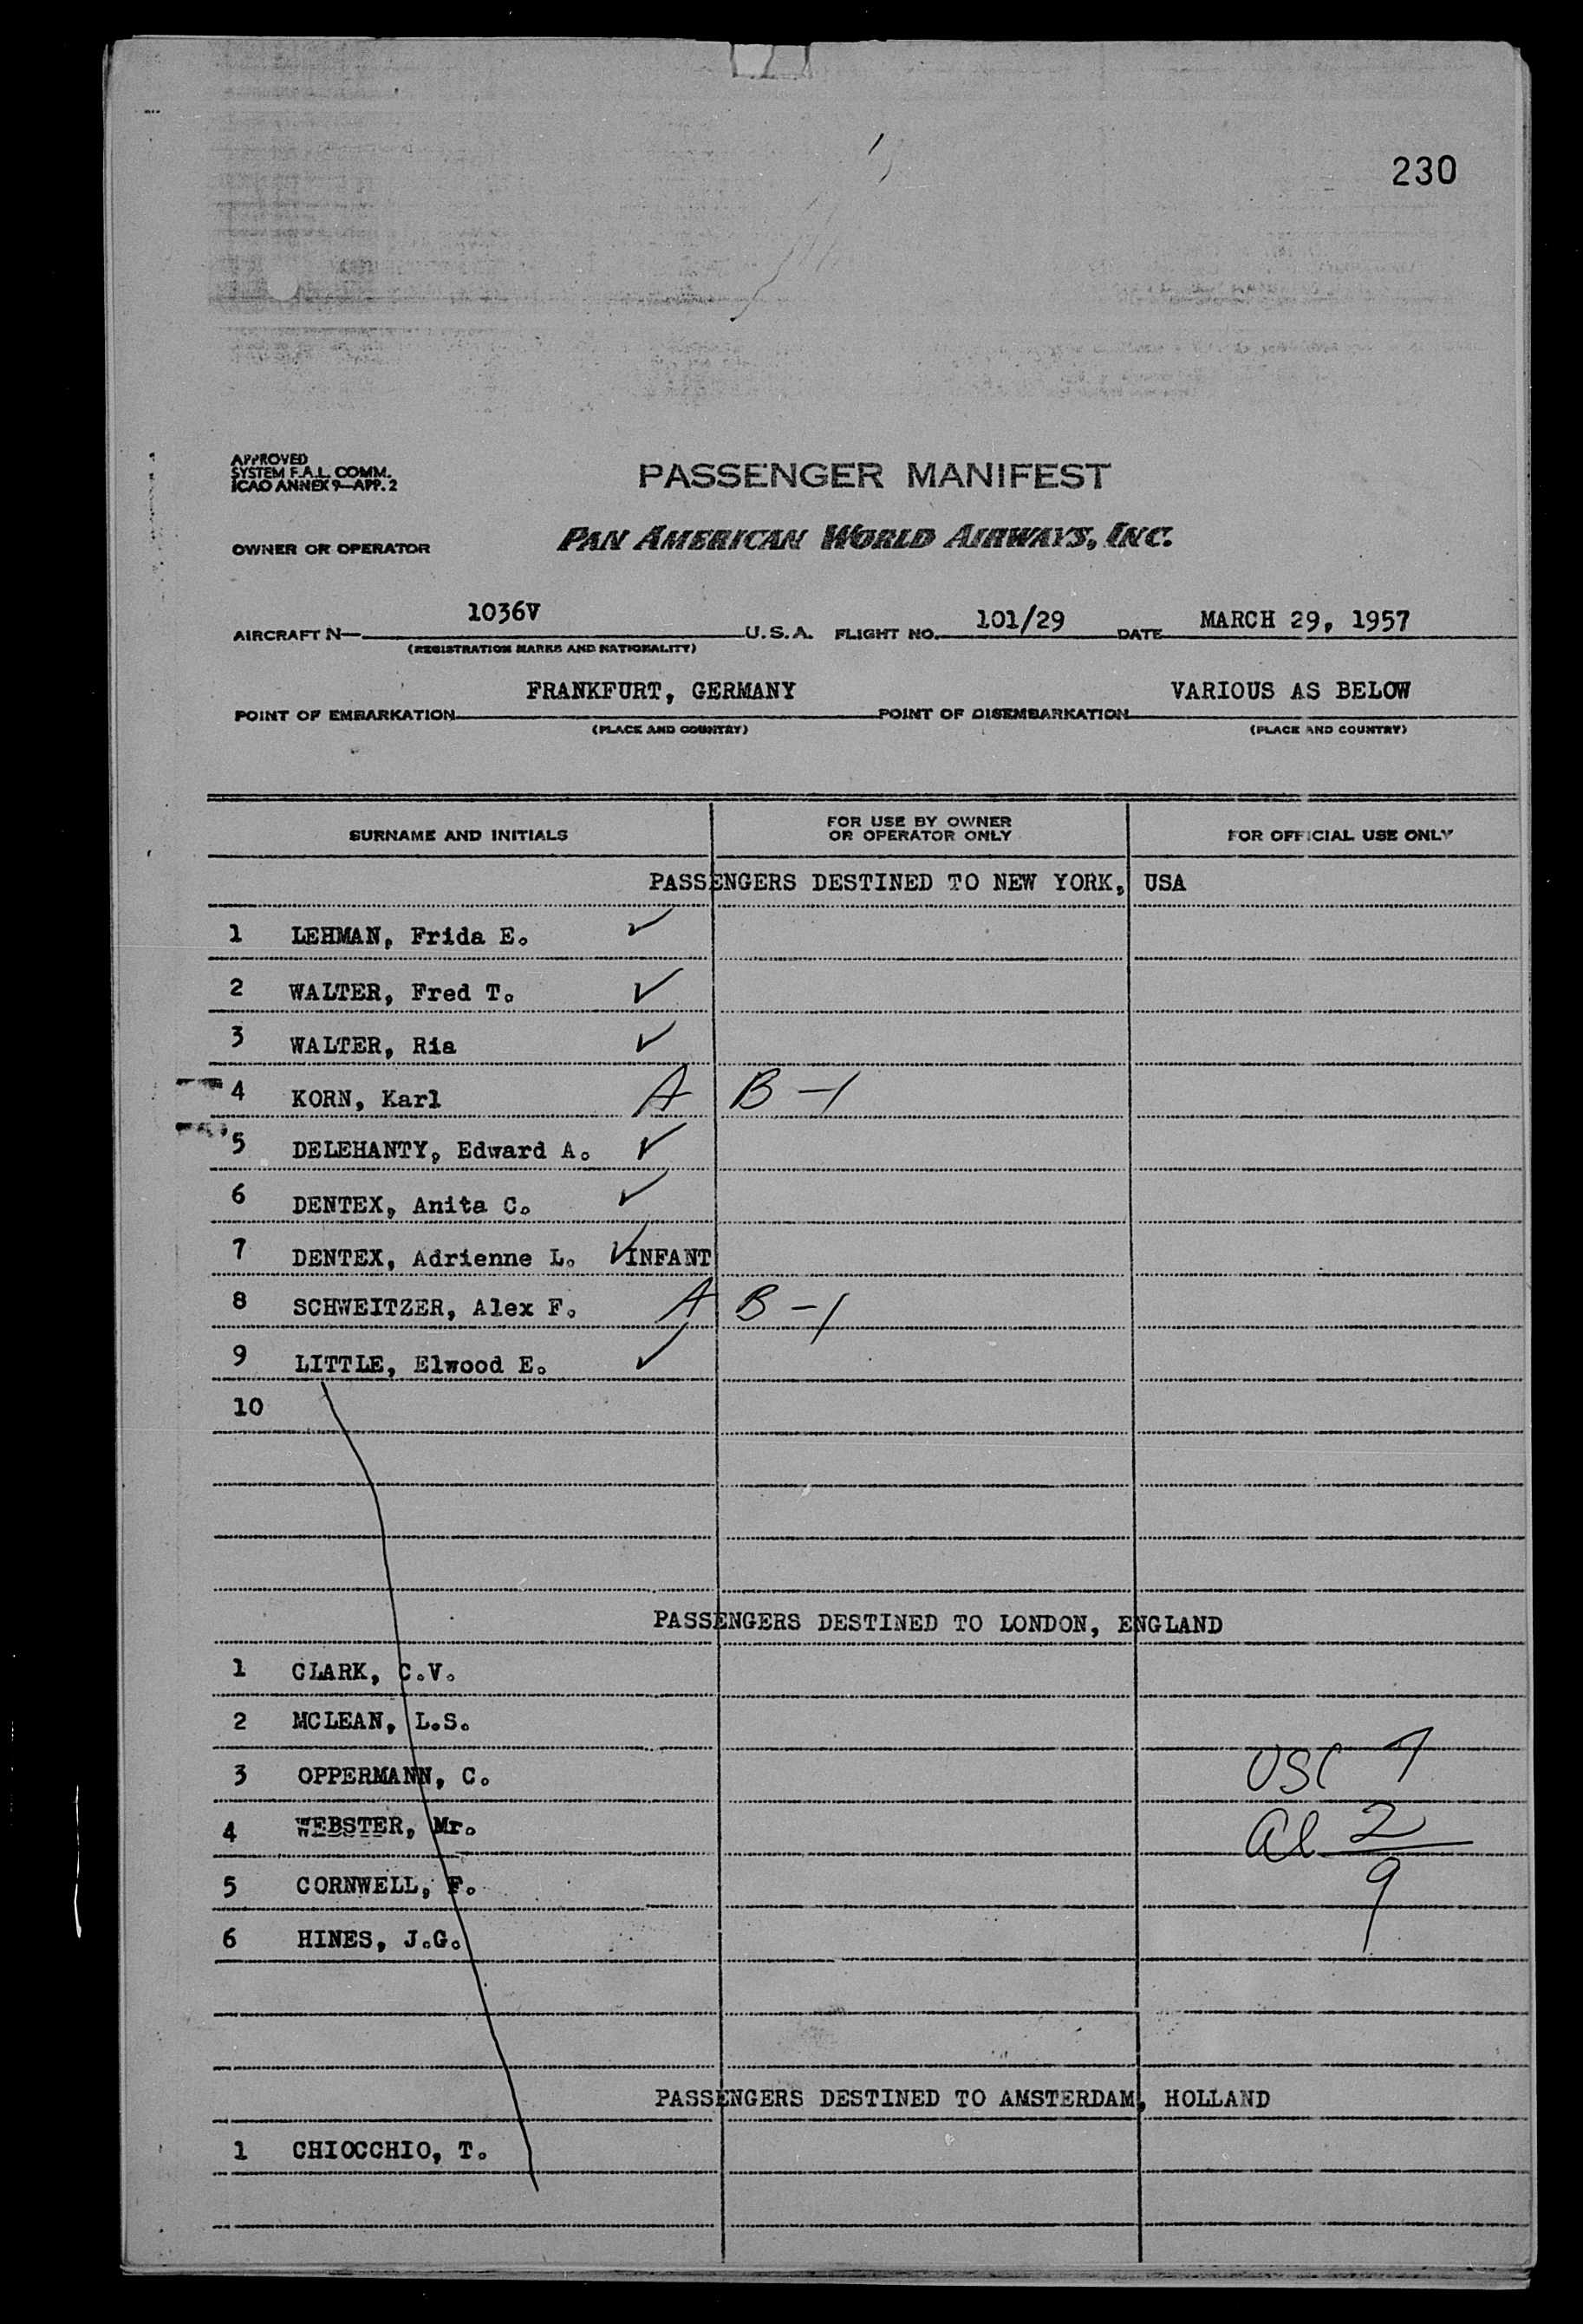 230
APPROVED
SYSTEM F.A.L. COMM.
ICAO ANNEX 9—APP. 2
PASSENGER MANIFEST
OWNER OR OPERATOR PAN AMERICAN WORLD AIRWAYS, INC.
AIRCRAFT N— 1036V U.S.A. FLIGHT NO. 101/29 DATE MARCH 29, 1957
(REGISTRATION MARKS AND NATIONALITY)
POINT OF EMBARKATION FRANKFURT, GERMANY POINT OF DISEMBARKATION VARIOUS AS BELOW
(PLACE AND COUNTRY) (PLACE AND COUNTRY)
SURNAME AND INITIALS FOR USE BY OWNER OR OPERATOR ONLY FOR OFFICIAL USE ONLY
PASSENGERS DESTINED TO NEW YORK, USA
1 LEHMAN, Frida E. ✓
2 WALTER, Fred T. ✓
3 WALTER, Ria ✓
4 KORN, Karl A B-1
5 DELEHANTY, Edward A. ✓
6 DENTEX, Anita C. ✓
7 DENTEX, Adrienne L. ✓ INFANT
8 SCHWEITZER, Alex F. A B-1
9 LITTLE, Elwood E. ✓
10
PASSENGERS DESTINED TO LONDON, ENGLAND
1 CLARK, C.V.
2 MCLEAN, L.S.
3 OPPERMANN, C. USC 7
4 WEBSTER, Mr. al 2
5 CORNWELL, F. 9
6 HINES, J.G.
PASSENGERS DESTINED TO AMSTERDAM, HOLLAND
1 CHIOCCHIO, T.